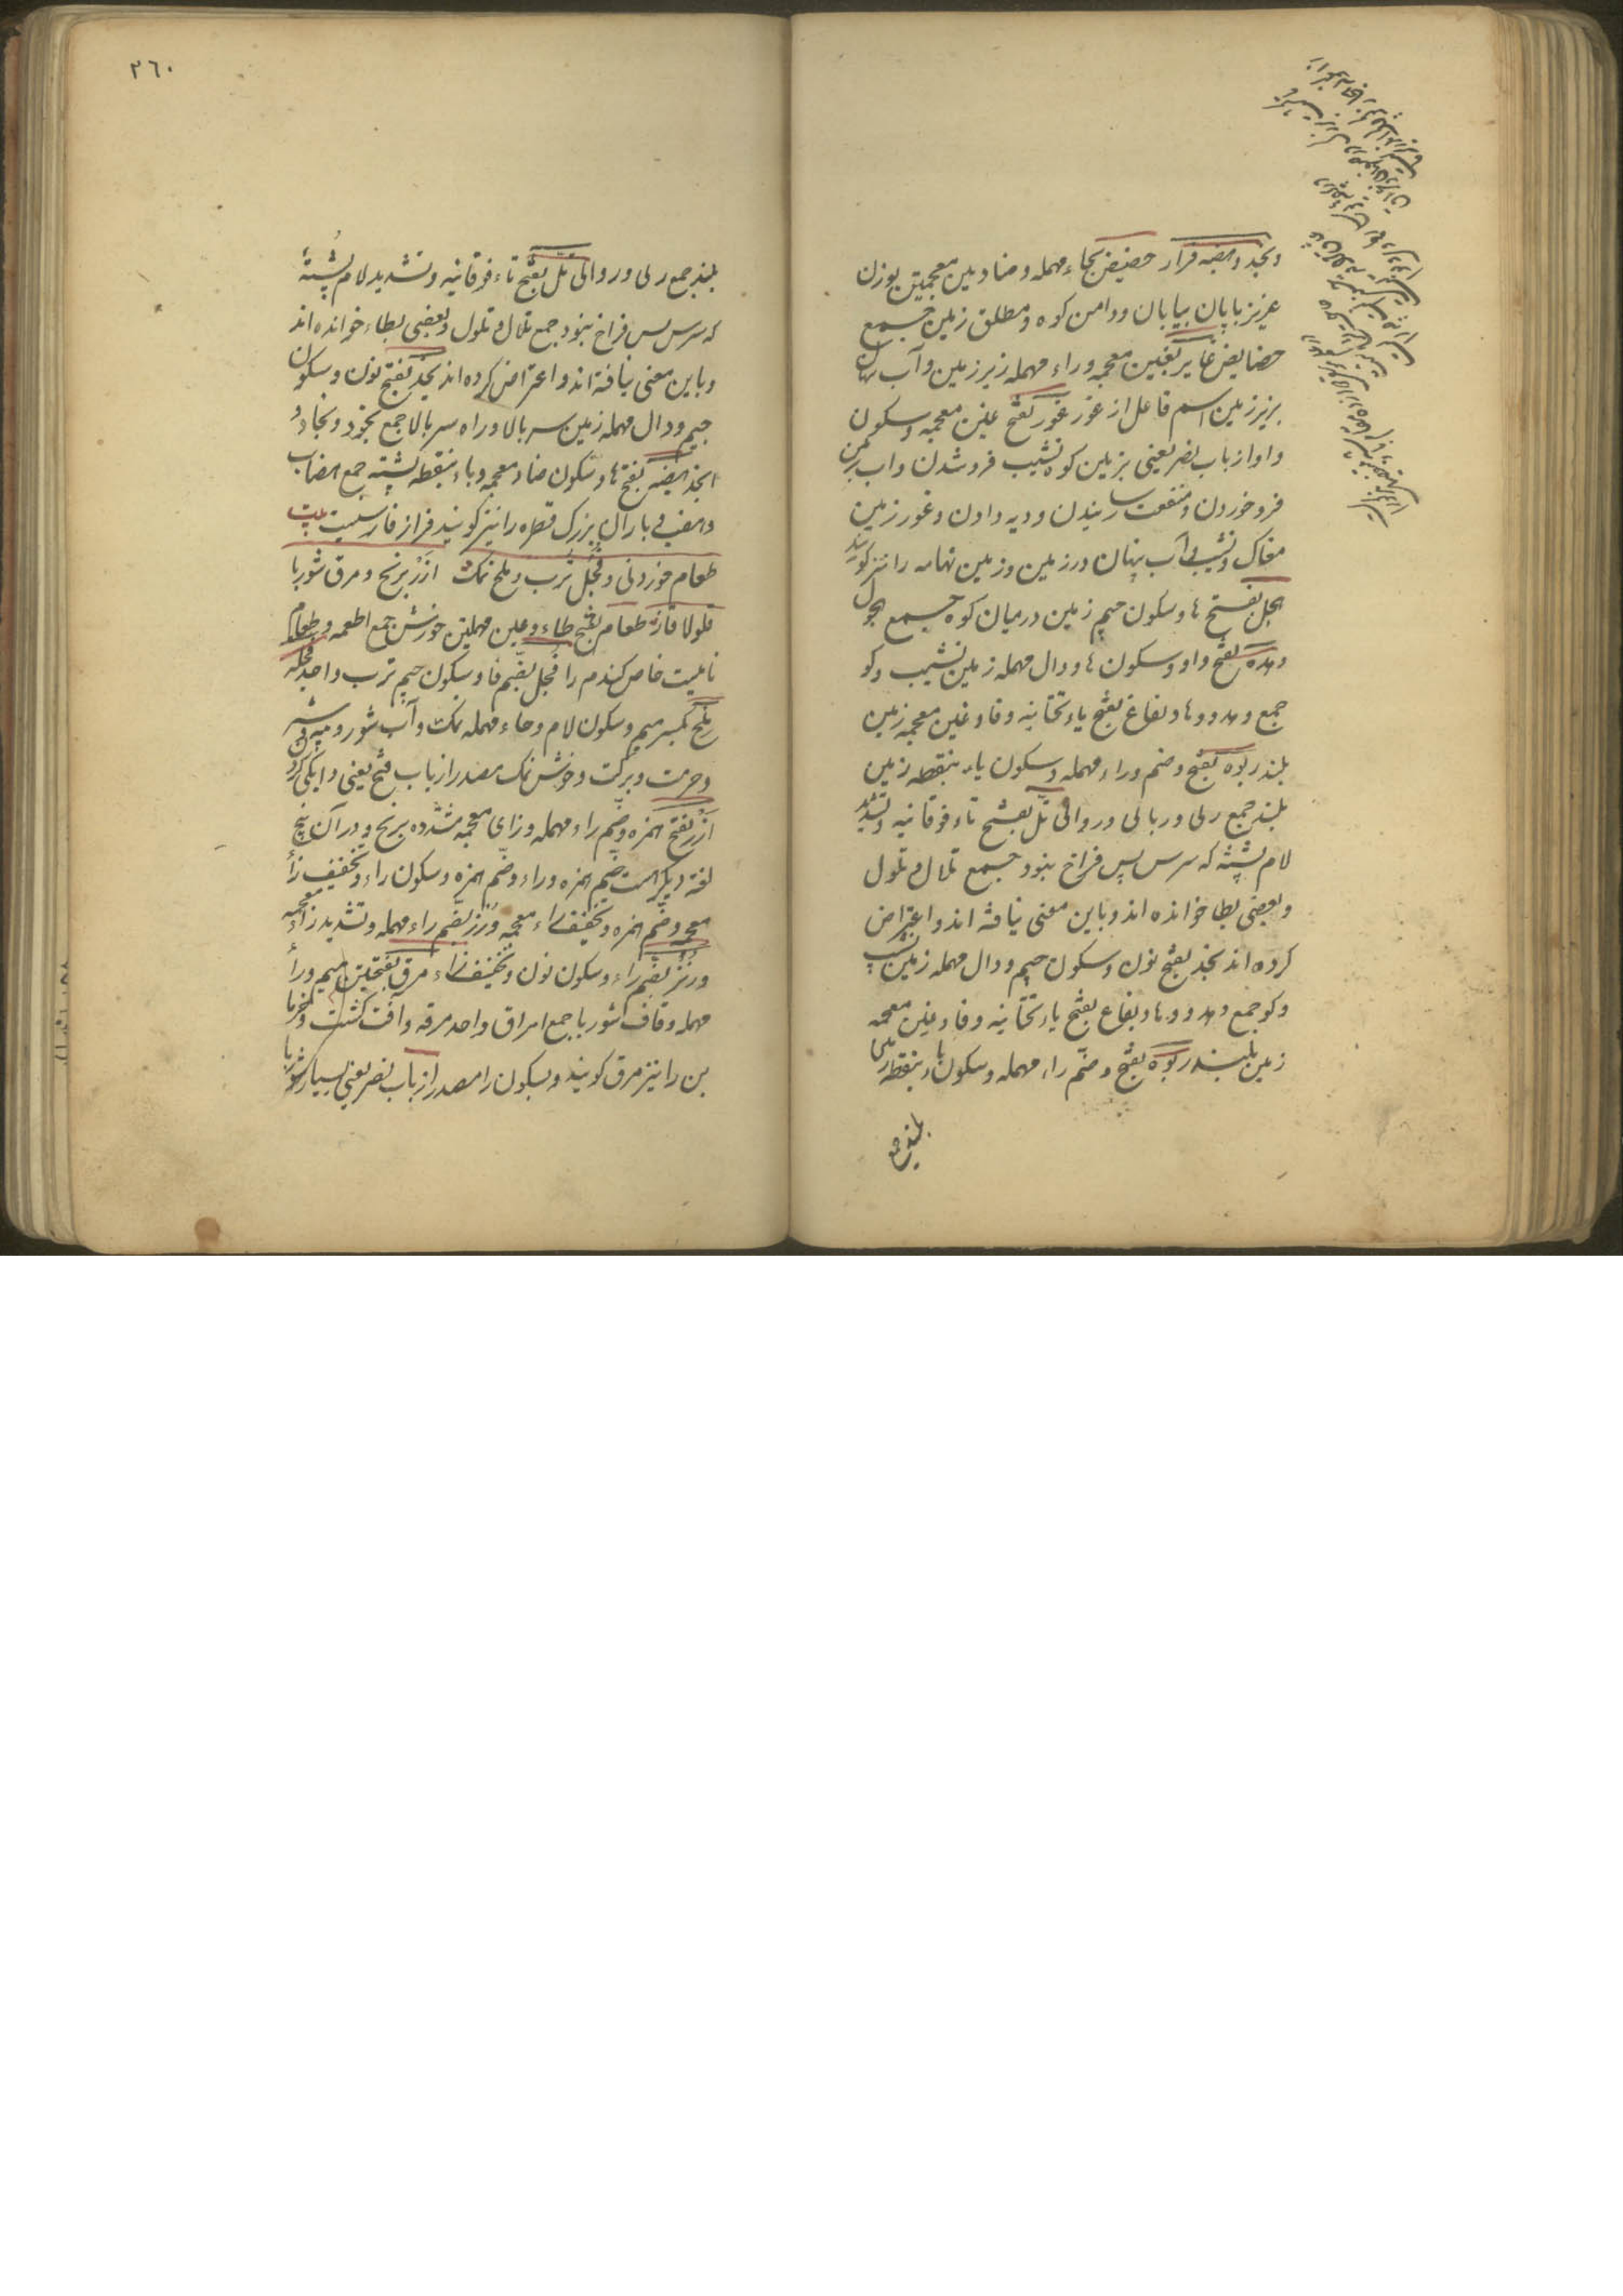 ونجد و هضبه فراز حضیض بحاء مهمله و ضادین معجمتین بوزن
عزیز پایان بیابان و دامن کوه و مطلق زمین جمع
حضایض غایر بغین معجمه و راء مهمله زیر زمین و آب نهان
بزیر زمین اسم فاعل از غور غور بفتح غین معجمه و سکون
واو از باب نصر یعنی بزمین کوه نشیب فرو شدن و اب بزمین
فرو خوردن و منفعت رسانیدن و دیه دادن و غور زمین
مغاک و نشیبی آب پنهان در زمین و زمین تهامه را نیز کویند
هجل بفتح ها و سکون جیم زمین در میان کوه جمع هجول
وهده بفتح واو و سکون ها و دال مهمله زمین نشیب و کو
جمع وهد و وهاد یفاع بفتح یاء تحتانیه و فا و غین معجمه زمین
بلند ربوه بفتح و ضم راء مهمله و سکون باء بنقطه زمین
بلند جمع ربی و ربابی و روابی تل بفتح تاء فوقانیه و تشدید
لام پشته که سرش پس فراخ نبود جمع تلال و تلول
و بعضی بطا خوانده اند و باین معنی نیافته اند و اعتراض
کرده اند نجد بفتح نون و سکون جیم و دال مهمله زمین نشیب
و کو جمع وهد و وهاد یفاع بفتح یاء تحتانیه و فا و غین معجمه
زمین بلند ربوه بفتح و ضم راء مهمله و سکون باء بنقطه زمین
بلند جمع
٢٦٠
بلند جمع ربی و روابی تل بفتح تاء فوقانیه و تشدید لام پشتهٔ
که سرس پس فراخ نبود جمع تلال و تلول و بعضی بطاء خوانده اند
و باین معنی نیافته اند و اعتراض کرده اند نجد بفتح نون و سکون
جیم و دال مهمله زمین سر بالا و راه سر بالا جمع نجود و نجاد و
انجد هضبه بفتح ها و سکون ضاد معجمه و باء بنقطه پشته جمع هضاب
و هضب فی باران بزرک قطره را نیز کویند فراز فارسیست بیت
طعام خوردنی و فجل ترب و ملح نمک ارز برنج و مرق شوربا
قلولا قاز طعام بفتح طاء و عین مهملتین خورش جمع اطعمه و طعام
نامیست خاص کندم را فجل بضم فا و سکون جیم ترب واحد فجله
ملح بکسر میم و سکون لام و حاء مهمله نمک و آب شور و پیه و شیر
و حرمت و برکت و خوش نمک مصدر از باب فتح یعنی
ارز بفتح همزه و ضم راء مهمله و زای معجمه مشدده برنج و در آن پنج
لغة دیکر هست ضم همزه و راء و ضم همزه و سکون راء و تخفیف زاء
معجمه و ضم همزه و تخفیف زاء معجمه ورز بضم راء مهمله و تشدید زاء معجمه
ورنز بضم راء و سکون نون و تخفیف زاء مرق بفتحتین میم و راء
مهمله و قاف شوربا جمع امراق واحد مرقه و آفت کشت و خرما
بن را نیز مرق کویند و بسکون را مصدر از باب نصر یعنی بسیار شوربا